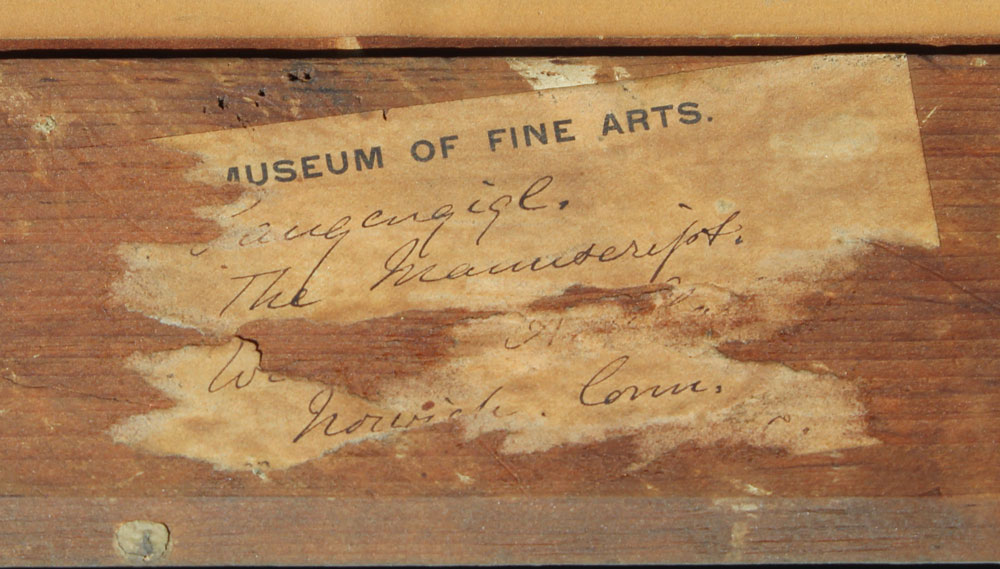 MUSEUM OF FINE ARTS.
Gaugengigl.
The Manuscript.
Norwich. Conn.